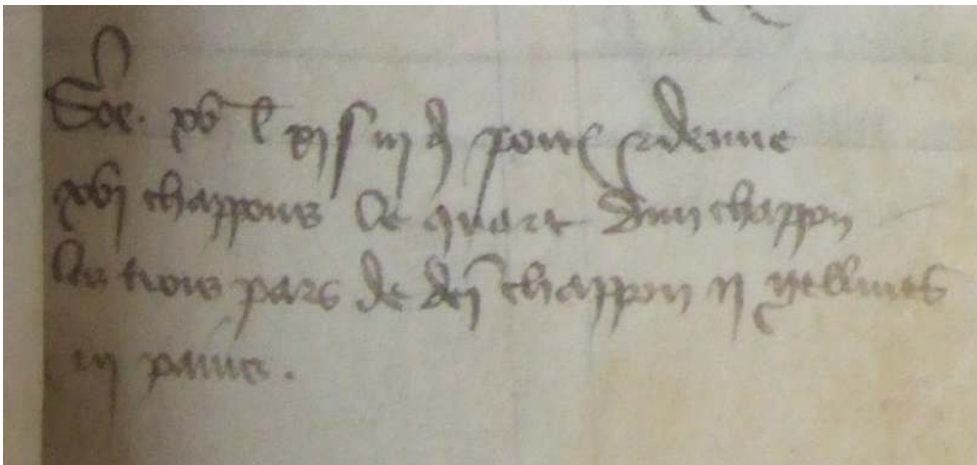 Soe. xv l xj s iij d poix
xvj chappons le quart dun chappon
les trois pars de dej chappon ij gellines
iij pains.